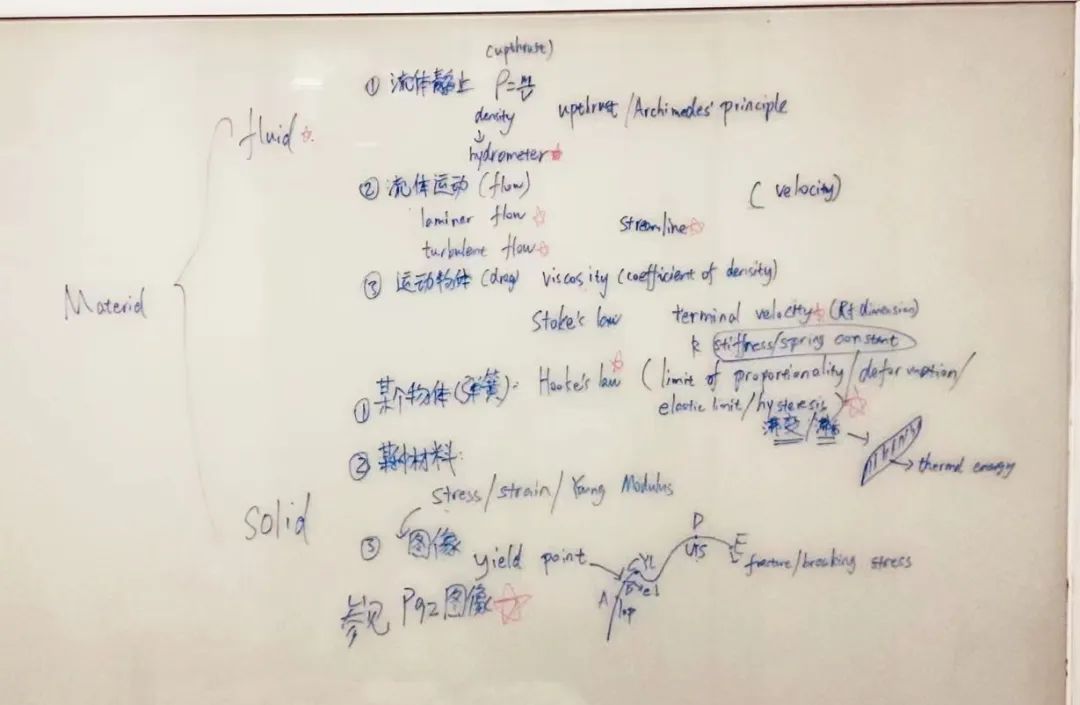 Material
fluid
(upthrust)
① 流体静止 ρ=m/v
density
upthrust/Archimedes' principle
↓
hydrometer
② 流体运动 (flow)
(velocity)
laminar flow
streamline
turbulent flow
③ 运动物体 (drag) viscosity (coefficient of density)
Stoke's law
terminal velocity
k stiffness/spring constant
① 某个物体(弹簧): Hooke's law (limit of proportionality/deformation/
elastic limit/hysteresis)
→ thermal energy
solid
② 某种材料:
Stress/strain/Young Modulus
③ 图像
yield point
A
lop
B
el
C
D
UTS
E
fracture/breaking stress
参见 P92图像